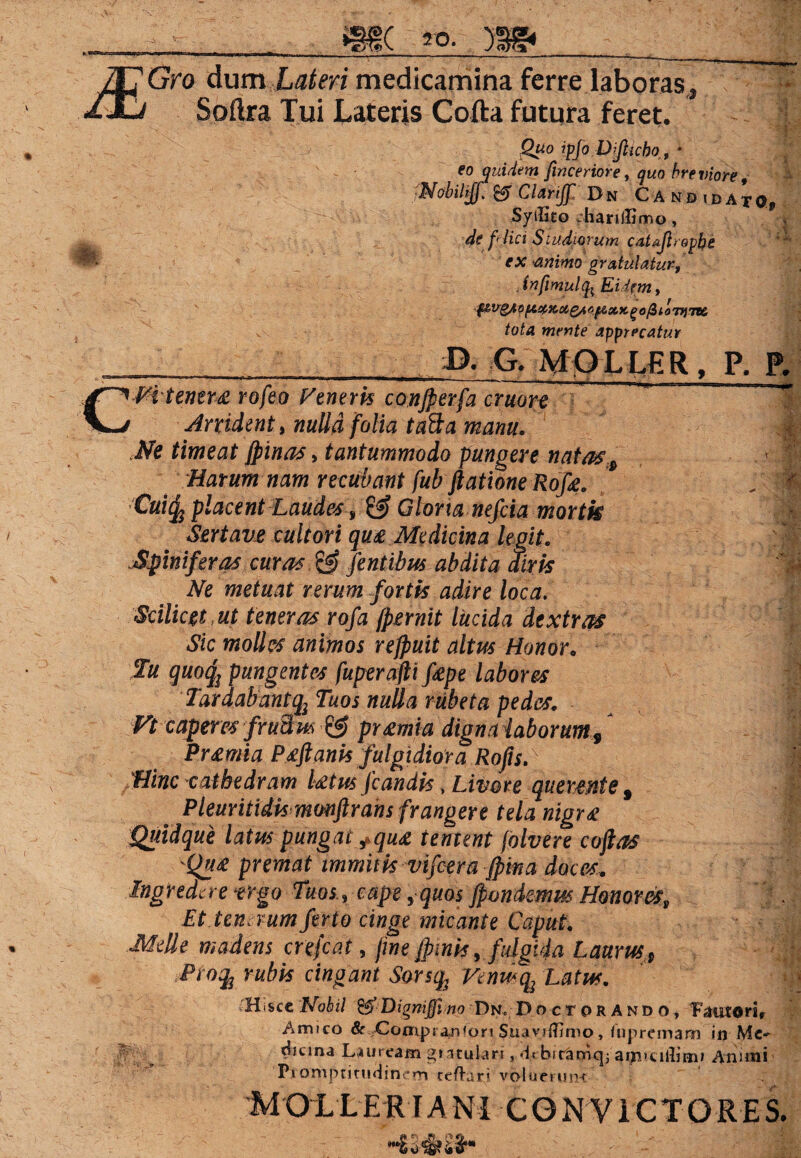 20.
ÆGro dum Lateri medicamina ferre laboras,
Soſtra Tui Lateris Coſta futura feret.
Quo ipſo Diſticho,
eo quidem ſinceriore, quo breviore,
Nobiliſſ. & Clariſſ. DN CANDIDATO,
Syſſito chariſſimo,
de felici Studiorum cataſtrophe
ex animo gratulatur,
inſimulq; Eidem,
tota mente apprecatur
D. G. MOLLER, P. P.
CVi teneræ roſeo Veneris conſperſa cruore
Arrident, nullâ folia tacta manu.
Ne timeat ſpinas, tantummodo pungere natas,
Harum nam recubant ſub ſtatione Roſæ.
Cuiq; placent Laudes, & Gloria neſcia mortis
Sertave cultori quæ Medicina legit.
Spiniferas curas & ſentibus abdita diris
Ne metuat rerum fortis adire loca.
Scilicet ut teneras roſa ſpernit lucida dextras
Sic molles animos reſpuit altus Honor.
Tu quoq; pungentes ſuperaſti ſæpe labores
Tardabantq; Tuos nulla rubeta pedes.
Vt caperes fructus & præmia digna laborum,
Præmia Pæſtanis fulgidiora Roſis.
Hinc cathedram lætus ſcandis, Livore querente,
Pleuritidis monſtrans frangere tela nigræ
Quidquè latus pungat, quæ tentent ſolvere coſtas
Quæ premat immitis viſcera ſpina doces.
Ingredere ergo Tuos, cape, quos ſpondemus Honores,
Et tenerum ſerto cinge micante Caput.
Melle madens creſcat, ſine ſpinis, fulgida Laurus,
Proq; rubis cingant Sorsq; Venusq; Latus.
Hisce Nobil & Digniſſimo DN. DOCTORANDO, Fautori,
Amico & Compranſori Suaviſſimo, ſupremam in Me-
dicina Lauream gratulari, debitamq; amiciſſimi Animi
Promptitudinem teſtari voluerunt
MOLLERIANI CONVICTORES.